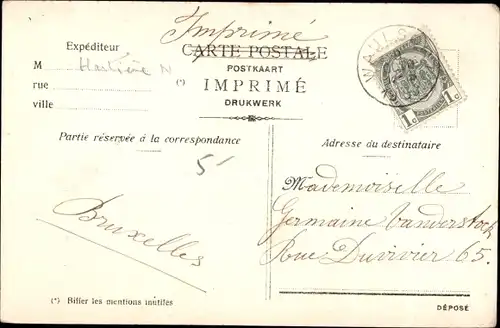 Imprimé
Expéditeur
CARTE POSTALE
POSTKAART
M
(*) IMPRIMÉ
rue
DRUKWERK
ville
1c 1c
Partie réservée à la correspondance
Adresse du destinataire
5
Mademoiselle
Germaine Vanderstock
Rue Duvivier 65.
Bruxelles
(*) Biffer les mentions inutiles
DÉPOSÉ